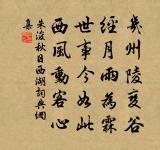 幾州陵變谷
經月雨為霖
世事今如此
西風動客心
朱浚秋日西湖詞典網
集